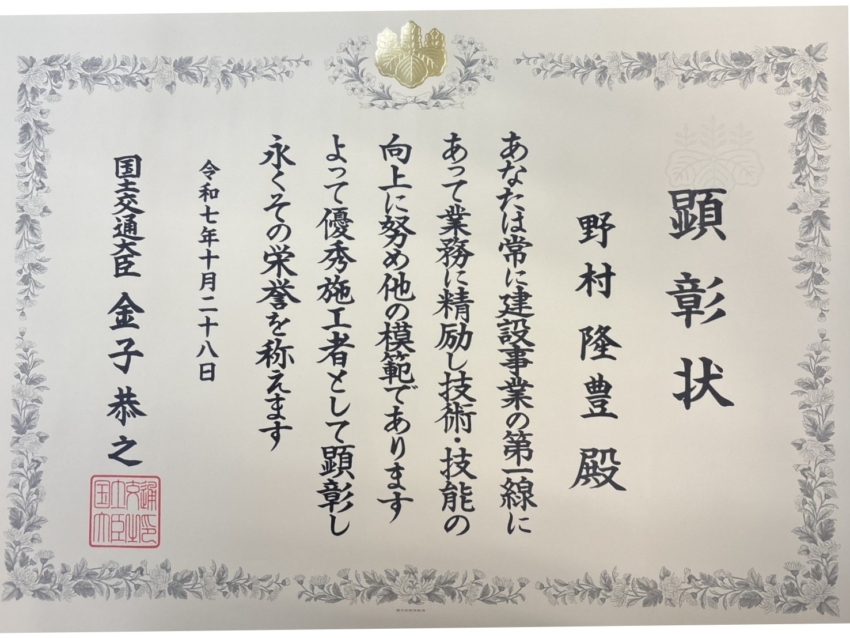 顕彰状
野村隆豊殿
あなたは常に建設事業の第一線に
あって業務に精励し技術・技能の
向上に努め他の模範であります
よって優秀施工者として顕彰し
永くその栄誉を称えます
令和七年十月二十八日
国土交通大臣 金子恭之
国土交通大臣之印